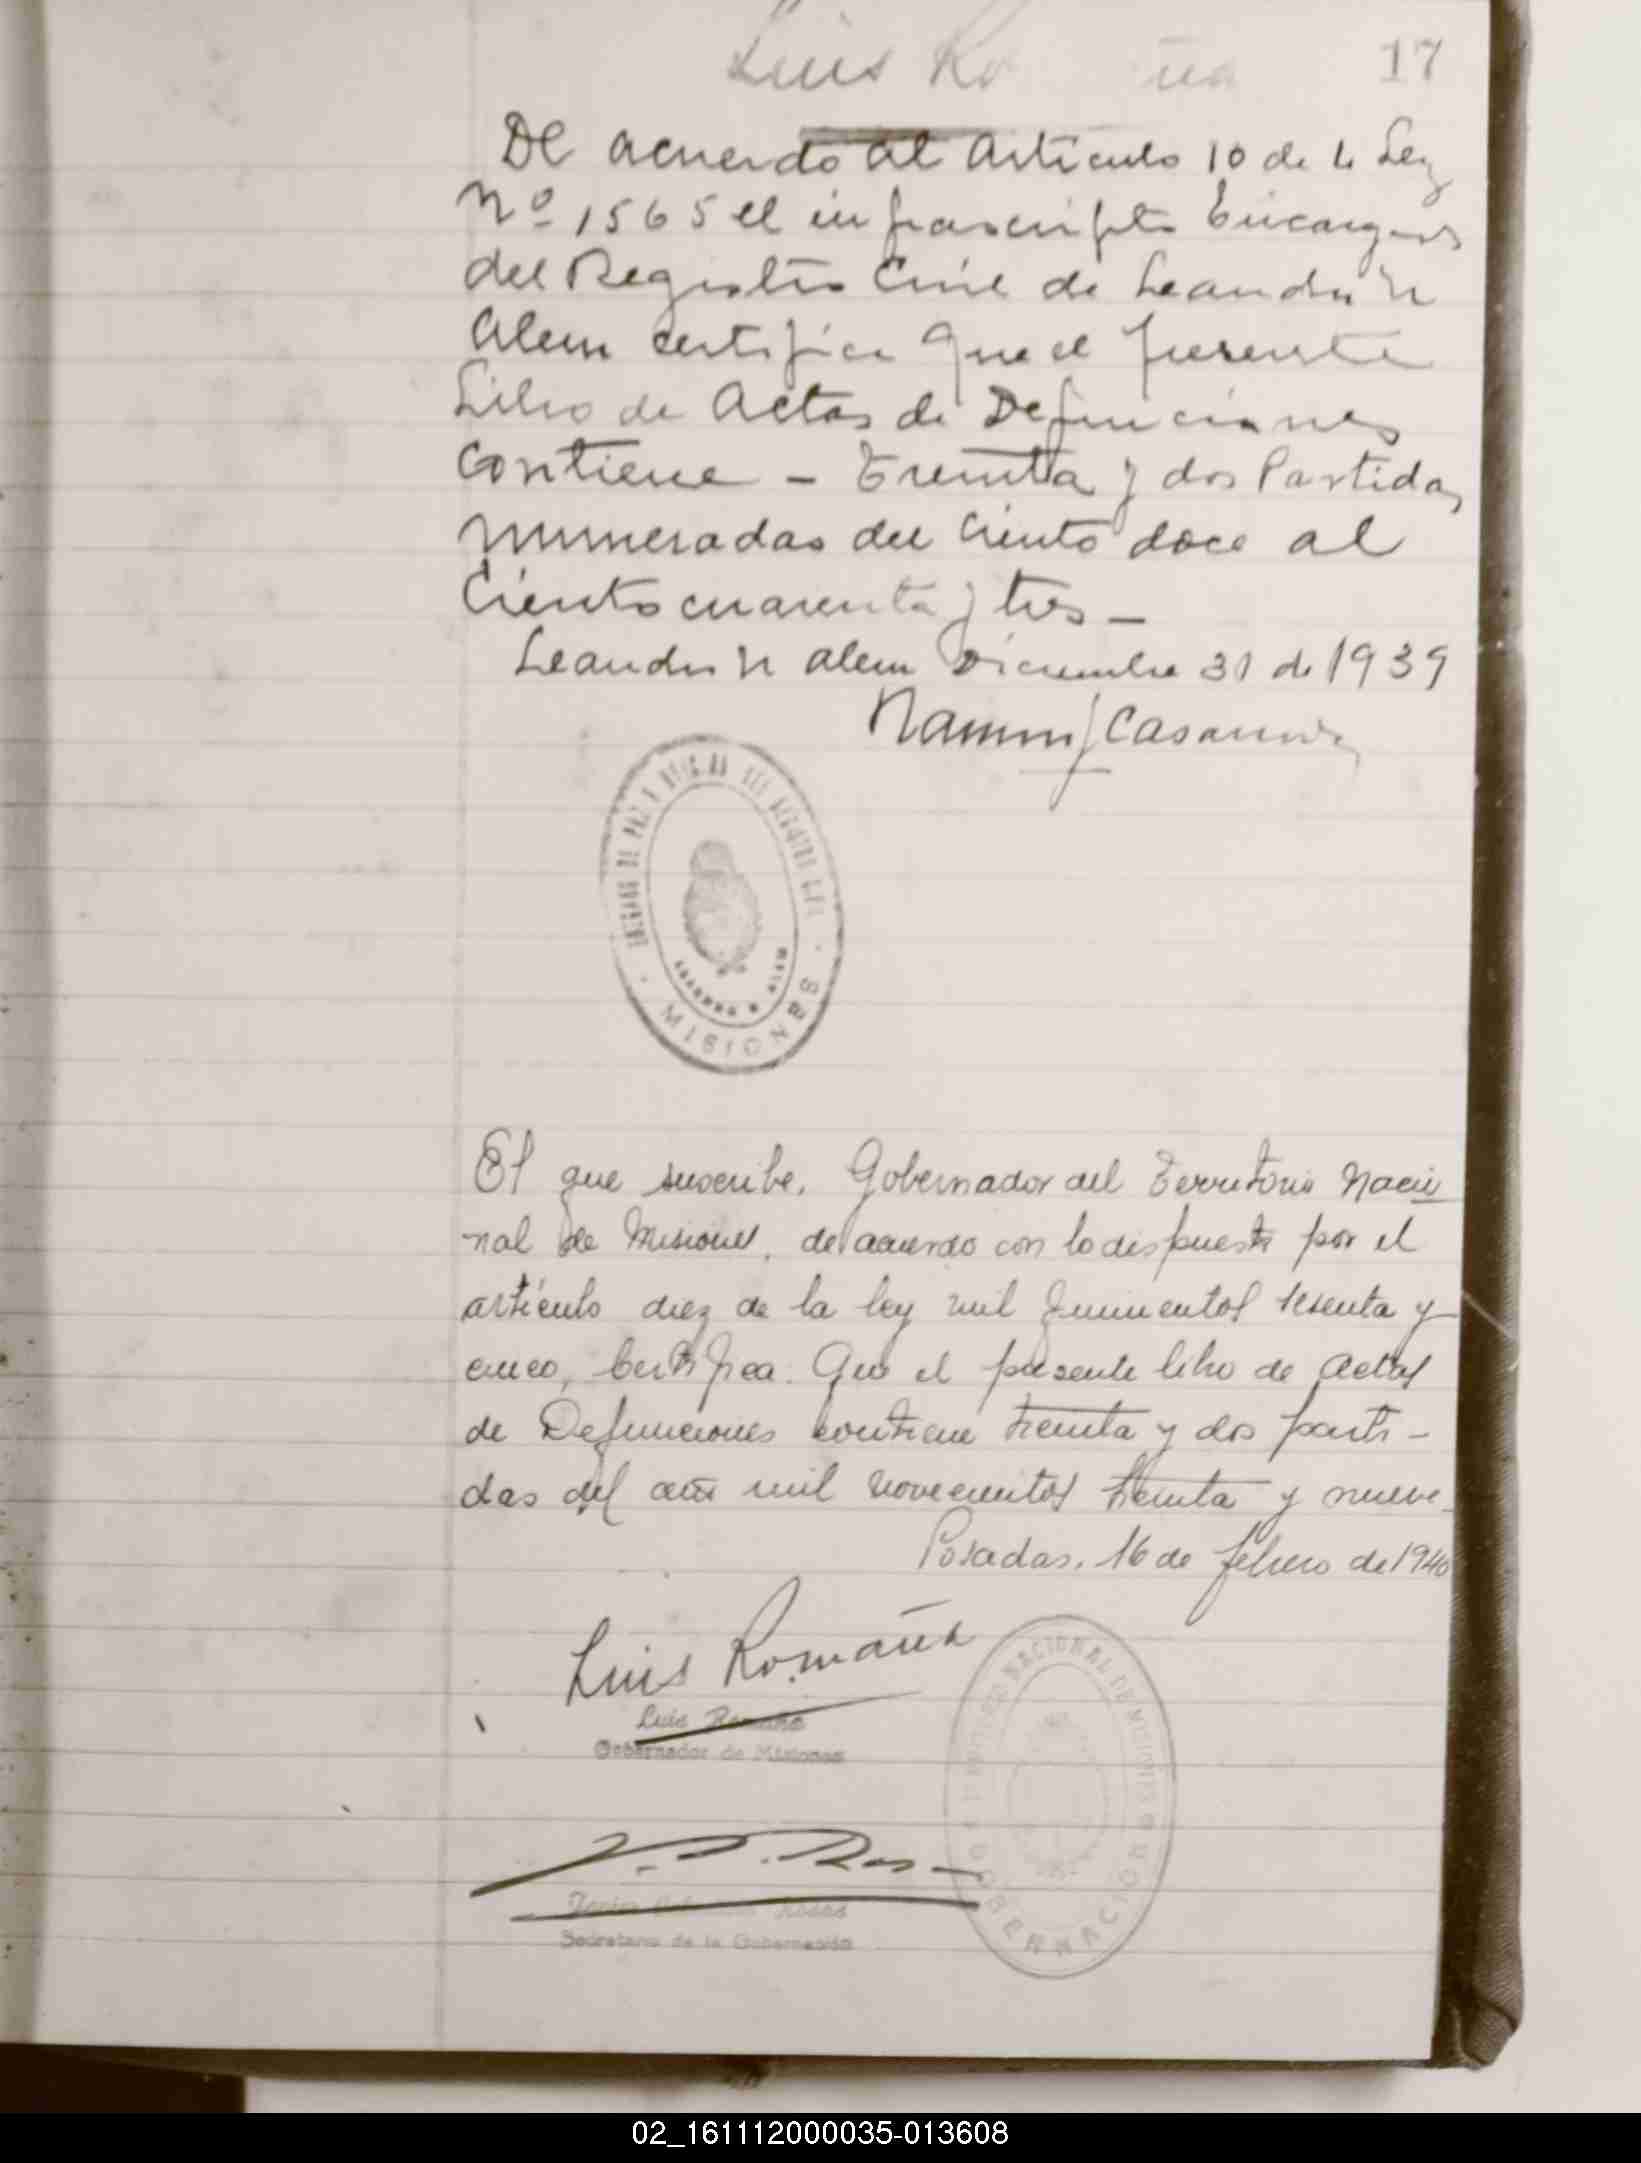 Luis Ro ña
17
De acuerdo al Articulo 10 de la Ley
Nº 1565 el infrascripto Encargado
del Registro Civil de Leandro N
Alem certifica que el presente
Libro de Actas de Defunciones
contiene - Treinta y dos Partidas
numeradas del Ciento doce al
Ciento cuarenta y tres -
Leandro N Alem Diciembre 31 de 1939
Casanova
JUZGADO DE PAZ DEL REGISTRO CIVIL
LEANDRO N ALEM
MISIONES
El que suscribe, Gobernador del Territorio Nacio
nal de Misiones, de acuerdo con lo dispuesto por el
artículo diez de la ley mil quinientos sesenta y
cinco, Certifica: Que el presente libro de Actas
de Defunciones contiene treinta y dos parti-
das del año mil novecientos treinta y nueve.
Posadas, 16 de febrero de 1940
Luis Romaña
Luis Romaña
Gobernador de Misiones
Rosas
Secretario de la Gobernación
TERRITORIO NACIONAL DE MISIONES
GOBERNACION
02_161112000035-013608